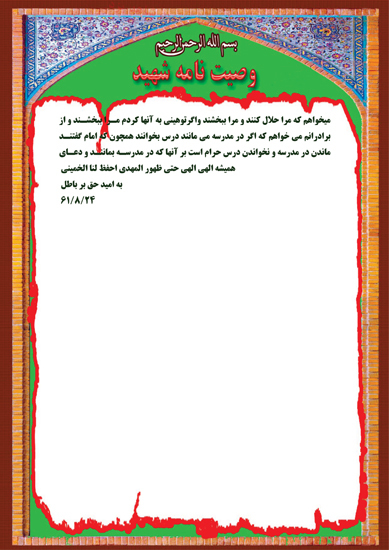 بسم الله الرحمن الرحیم
وصیت نامه شهید
میخواهم که مرا حلال کنند و مرا ببخشند واگرتوهینی به آنها کردم مرا ببخشند و از
برادرانم می خواهم که اگر در مدرسه می مانند درس بخوانند همچون که امام گفتند
ماندن در مدرسه و نخواندن درس حرام است بر آنها که در مدرسه بمانند و دعای
همیشه الهی الهی حتی ظهور المهدی احفظ لنا الخمینی
به امید حق بر باطل
۶۱/۸/۲۴